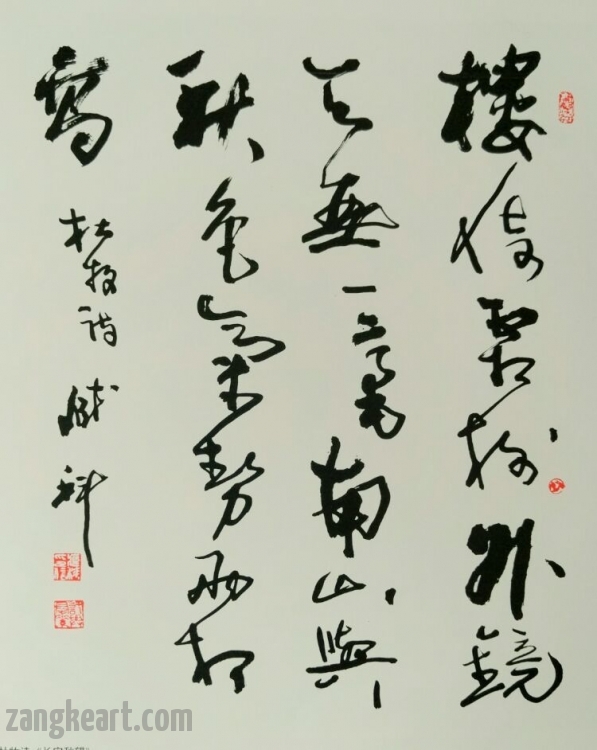 樓倚霜樹外鏡
天無一毫南山與
秋色氣勢兩相
高
杜牧詩
zangkeart.com